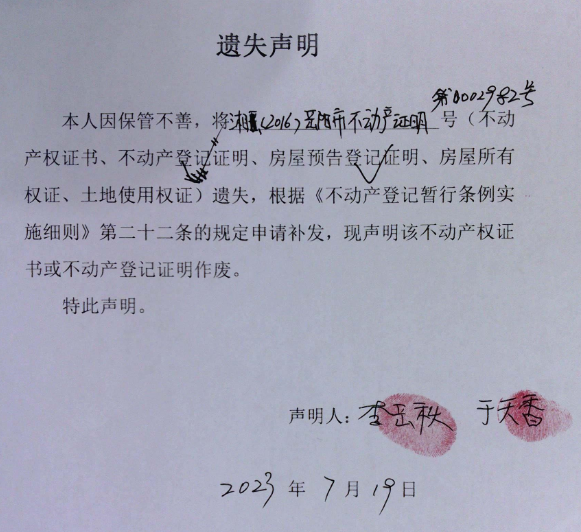 遗失声明
第0002982号
本人因保管不善，将湘(2016)岳阳市不动产证明号（不动
产权证书、不动产登记证明、房屋预告登记证明、房屋所有
权证、土地使用权证）遗失，根据《不动产登记暂行条例实
施细则》第二十二条的规定申请补发，现声明该不动产权证
书或不动产登记证明作废。
特此声明。
声明人：李岳秋 于天香
2023年7月19日